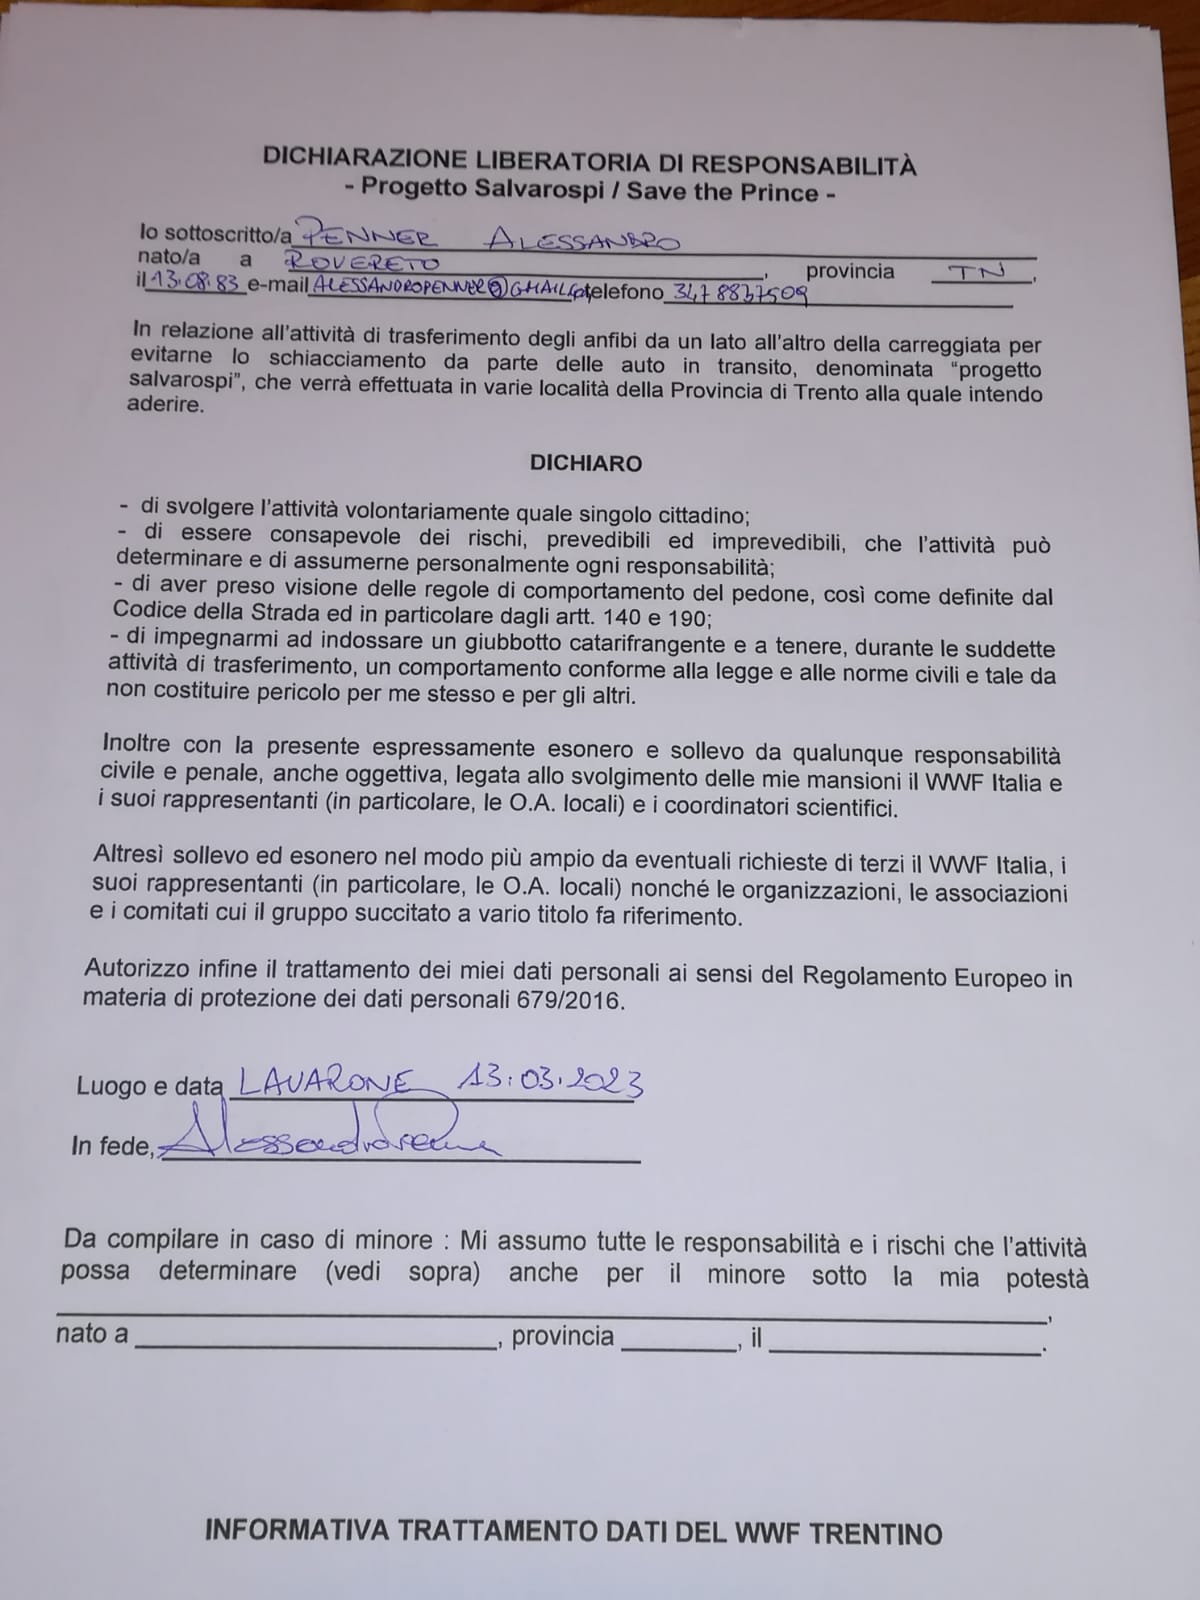 DICHIARAZIONE LIBERATORIA DI RESPONSABILITÀ
- Progetto Salvarospi / Save the Prince -
Io sottoscritto/a PENNER ALESSANDRO
nato/a a ROVERETO, provincia TN,
il 13.08.83 e-mail ALESSANDROPENNER@GMAIL.COM telefono 3478837509
In relazione all'attività di trasferimento degli anfibi da un lato all'altro della carreggiata per
evitarne lo schiacciamento da parte delle auto in transito, denominata "progetto
salvarospi", che verrà effettuata in varie località della Provincia di Trento alla quale intendo
aderire.
DICHIARO
- di svolgere l'attività volontariamente quale singolo cittadino;
- di essere consapevole dei rischi, prevedibili ed imprevedibili, che l'attività può
determinare e di assumerne personalmente ogni responsabilità;
- di aver preso visione delle regole di comportamento del pedone, così come definite dal
Codice della Strada ed in particolare dagli artt. 140 e 190;
- di impegnarmi ad indossare un giubbotto catarifrangente e a tenere, durante le suddette
attività di trasferimento, un comportamento conforme alla legge e alle norme civili e tale da
non costituire pericolo per me stesso e per gli altri.
Inoltre con la presente espressamente esonero e sollevo da qualunque responsabilità
civile e penale, anche oggettiva, legata allo svolgimento delle mie mansioni il WWF Italia e
i suoi rappresentanti (in particolare, le O.A. locali) e i coordinatori scientifici.
Altresì sollevo ed esonero nel modo più ampio da eventuali richieste di terzi il WWF Italia, i
suoi rappresentanti (in particolare, le O.A. locali) nonché le organizzazioni, le associazioni
e i comitati cui il gruppo succitato a vario titolo fa riferimento.
Autorizzo infine il trattamento dei miei dati personali ai sensi del Regolamento Europeo in
materia di protezione dei dati personali 679/2016.
Luogo e data LAVARONE 13.03.2023
In fede, Alessandro Penner
Da compilare in caso di minore : Mi assumo tutte le responsabilità e i rischi che l'attività
possa determinare (vedi sopra) anche per il minore sotto la mia potestà
,
nato a , provincia , il .
INFORMATIVA TRATTAMENTO DATI DEL WWF TRENTINO